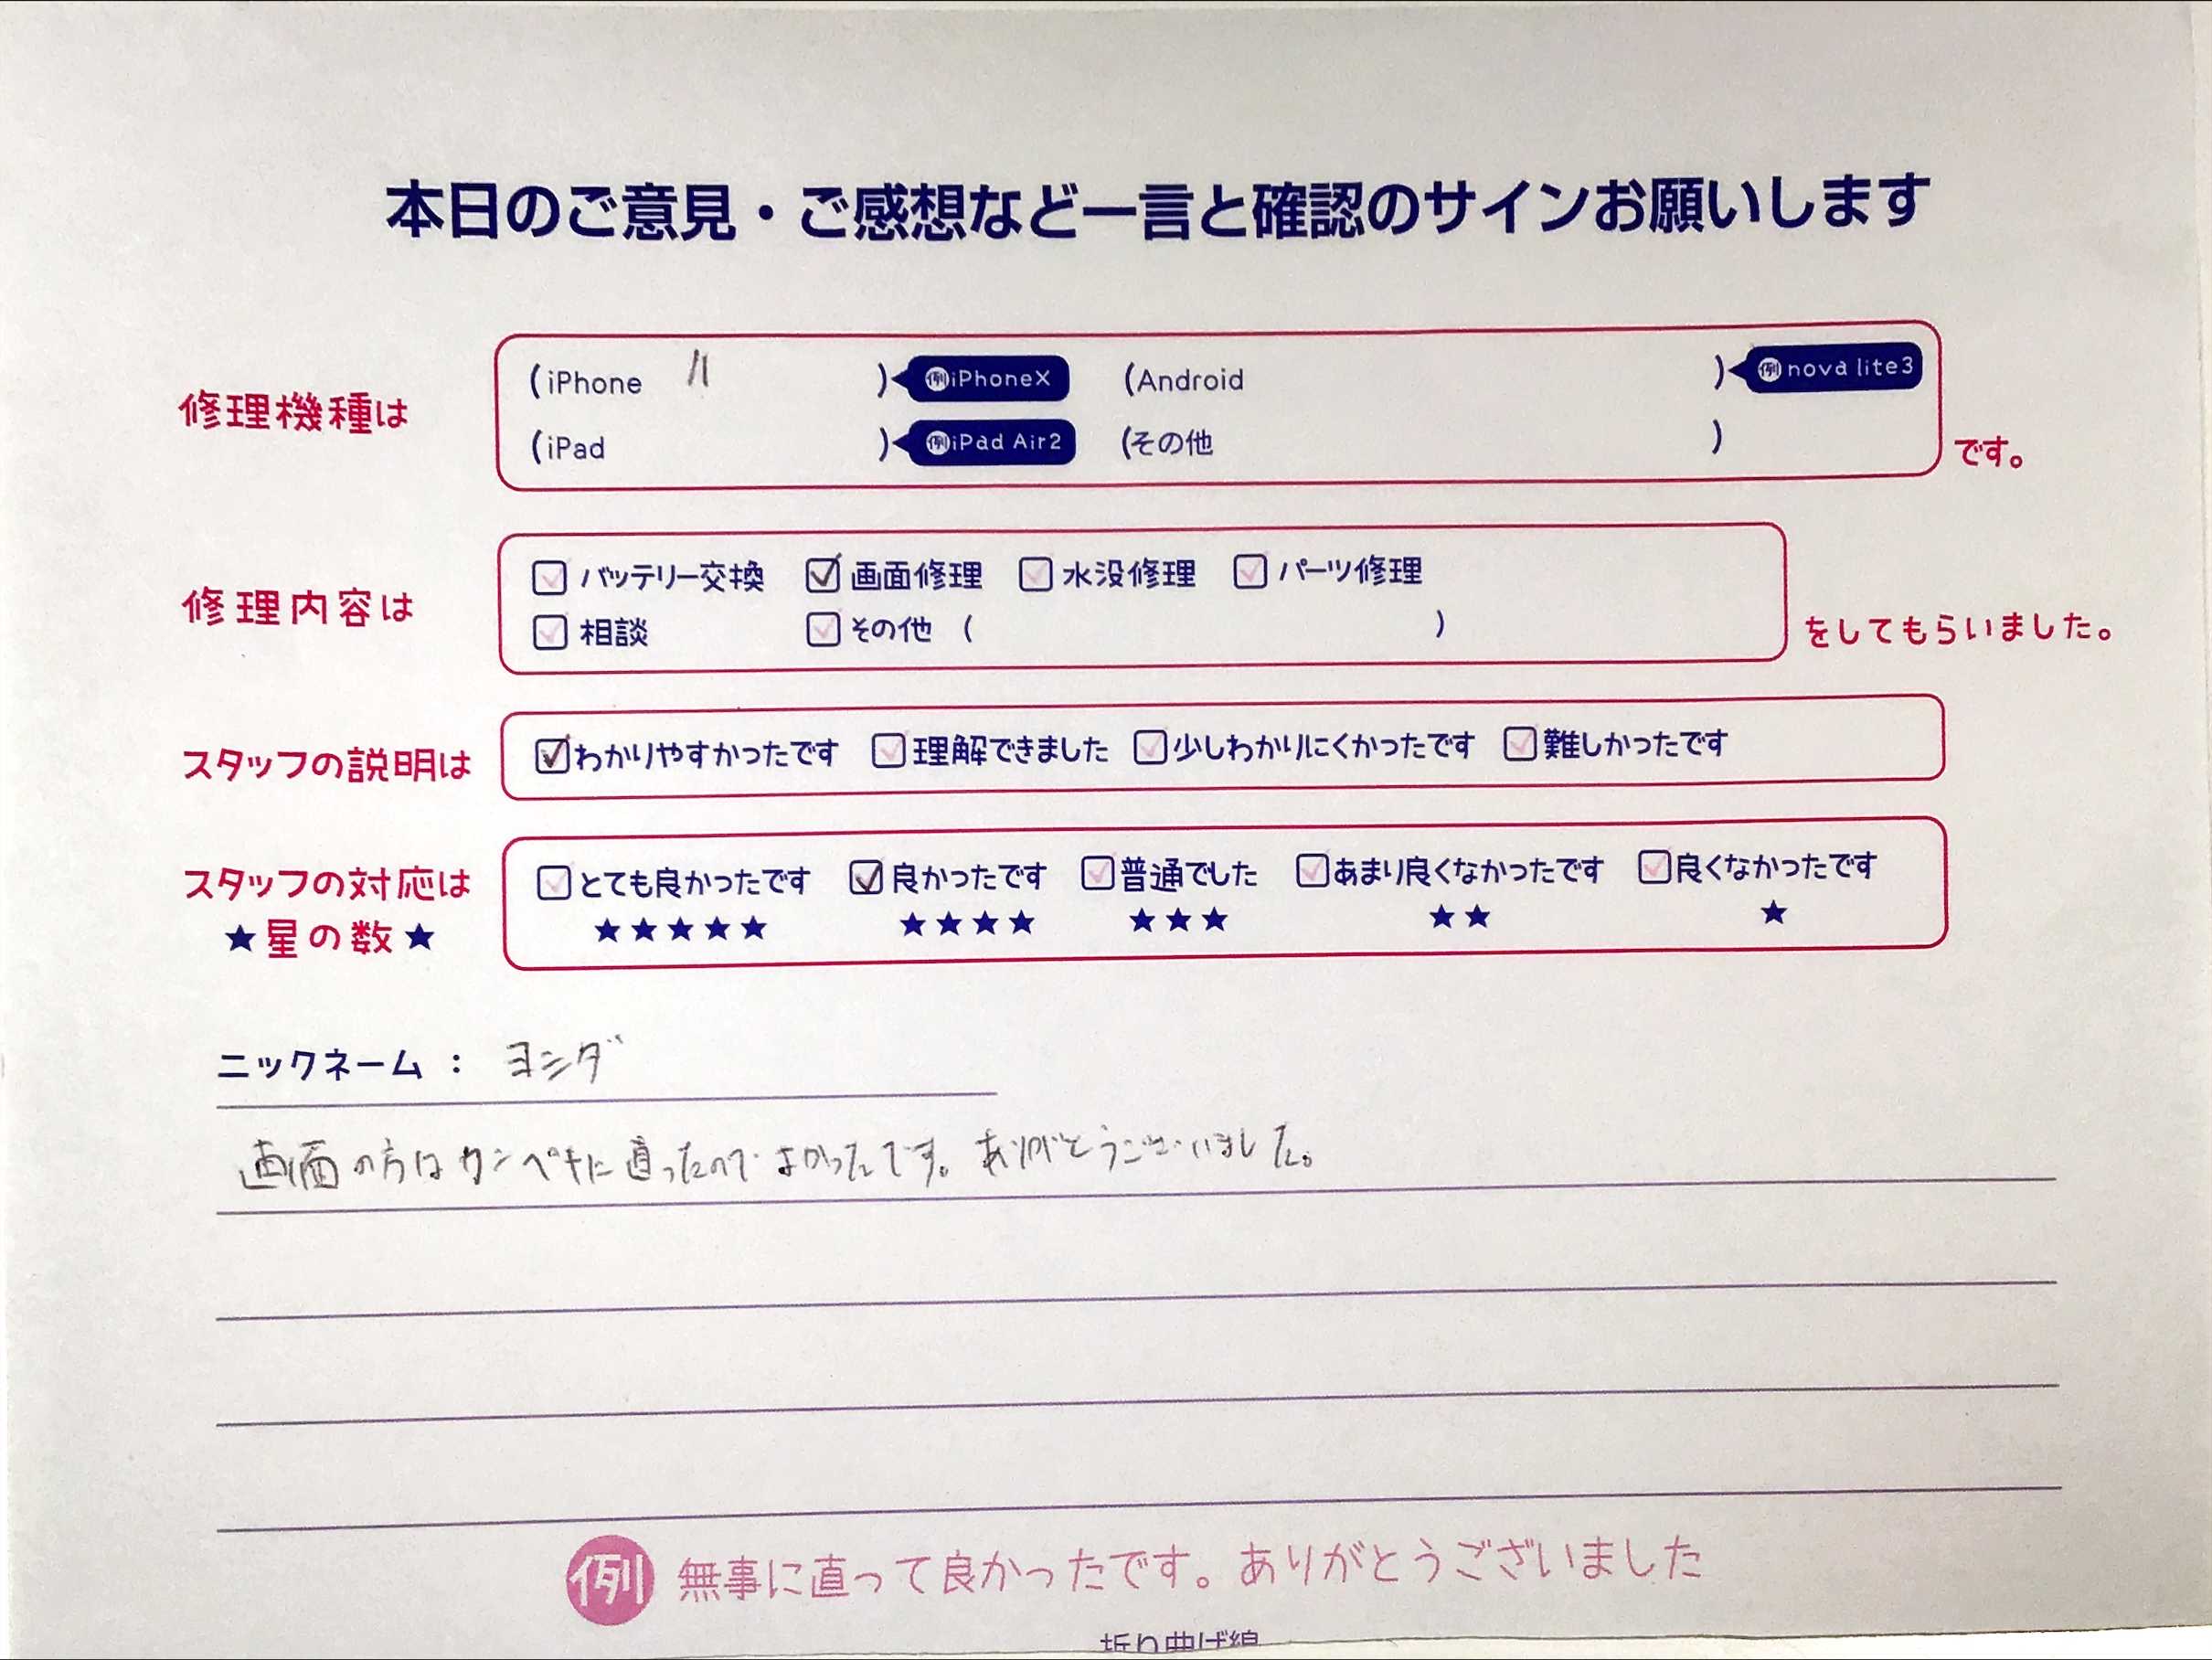 本日のご意見・ご感想など一言と確認のサインお願いします
修理機種は (iPhone 11 ) 例iPhoneX (Android ) 例nova lite3
(iPad ) 例iPad Air2 (その他 ) です。
修理内容は バッテリー交換 画面修理 水没修理 パーツ修理
相談 その他 ( ) をしてもらいました。
スタッフの説明は わかりやすかったです 理解できました 少しわかりにくかったです 難しかったです
スタッフの対応は とても良かったです 良かったです 普通でした あまり良くなかったです 良くなかったです
★星の数★ ★★★★★ ★★★★ ★★★ ★★ ★
ニックネーム : ヨシダ
画面の方はカンペキに直ったのでよかったです。ありがとうございました。
例 無事に直って良かったです。ありがとうございました
折り曲げ線